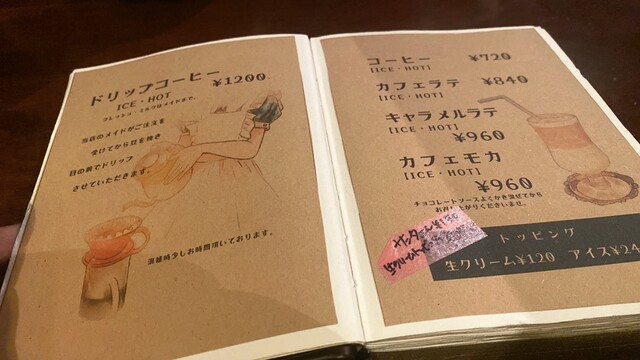 ドリップコーヒー ¥1200
ICE・HOT
フレッシュ・ミルクはメイドまで。
当店のメイドがご注文を
受けてから豆を挽き
目の前でドリップ
させていただきます。
混雑時少しお時間頂いております。
コーヒー ¥720
[ICE・HOT]
カフェラテ ¥840
[ICE・HOT]
キャラメルラテ
[ICE・HOT]
¥960
カフェモカ
[ICE・HOT]
¥960
チョコレートソースよくかき混ぜてから
お召し上がりくださいませ。
トッピング
生クリーム¥120 アイス¥24